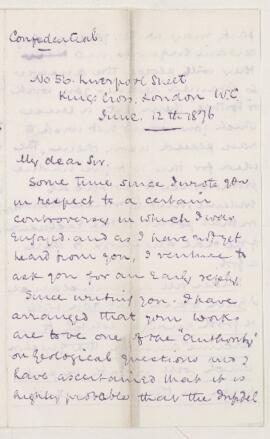 Confidential
No 56. Liverpool Street
Kings Cross, London W.C
June. 12th 1876
My dear Sir.
Some time since I wrote you
in respect to a certain
controversy in which I was
engaged. and as I have not yet
heard from you, I venture to
ask you for an Early reply.
Since writing you. I have
arranged that your works
are to be one of the "authority"
on Geological questions and I
have ascertained that it is
highly probable that the Infidel